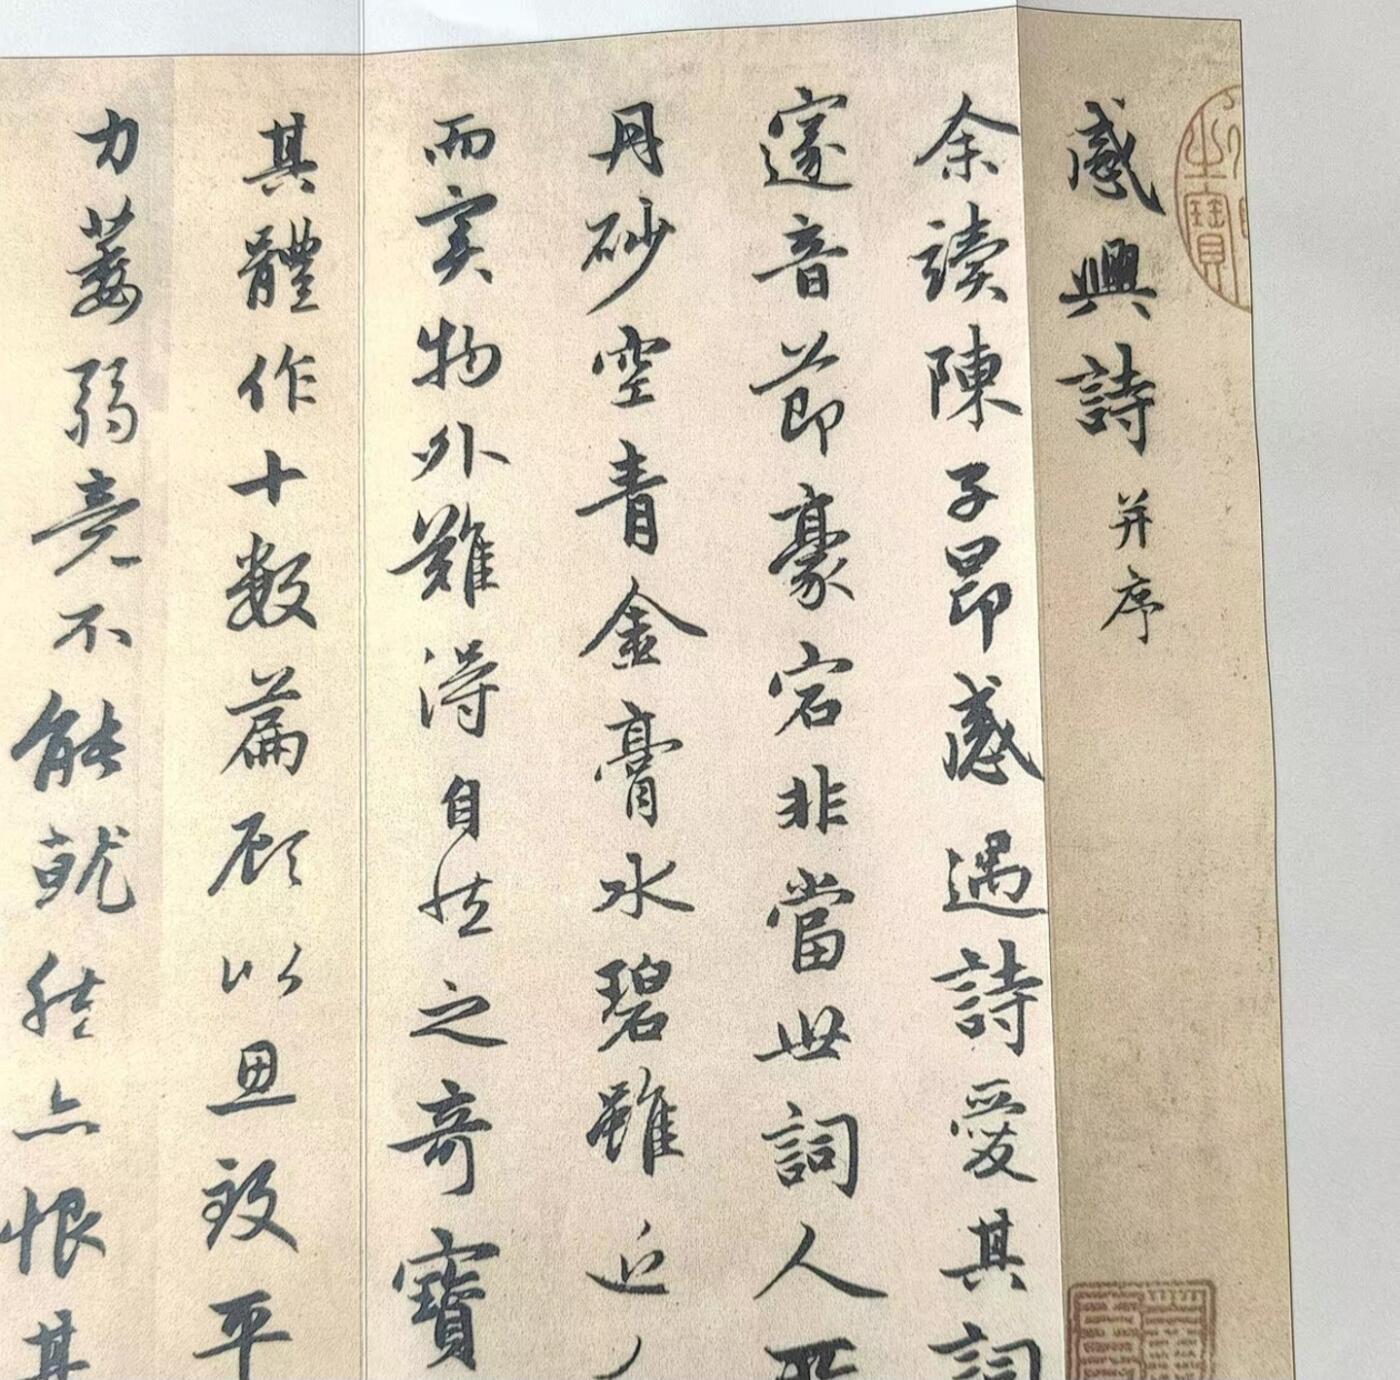 感興詩并序
余讀陳子昂感遇詩愛其詞
邃音節豪宕非當世詞人
丹砂空青金膏水碧雖近
而實物外難得自然之奇寶
其體作十數篇顧以思致平
力萎弱竟不能就然亦恨其